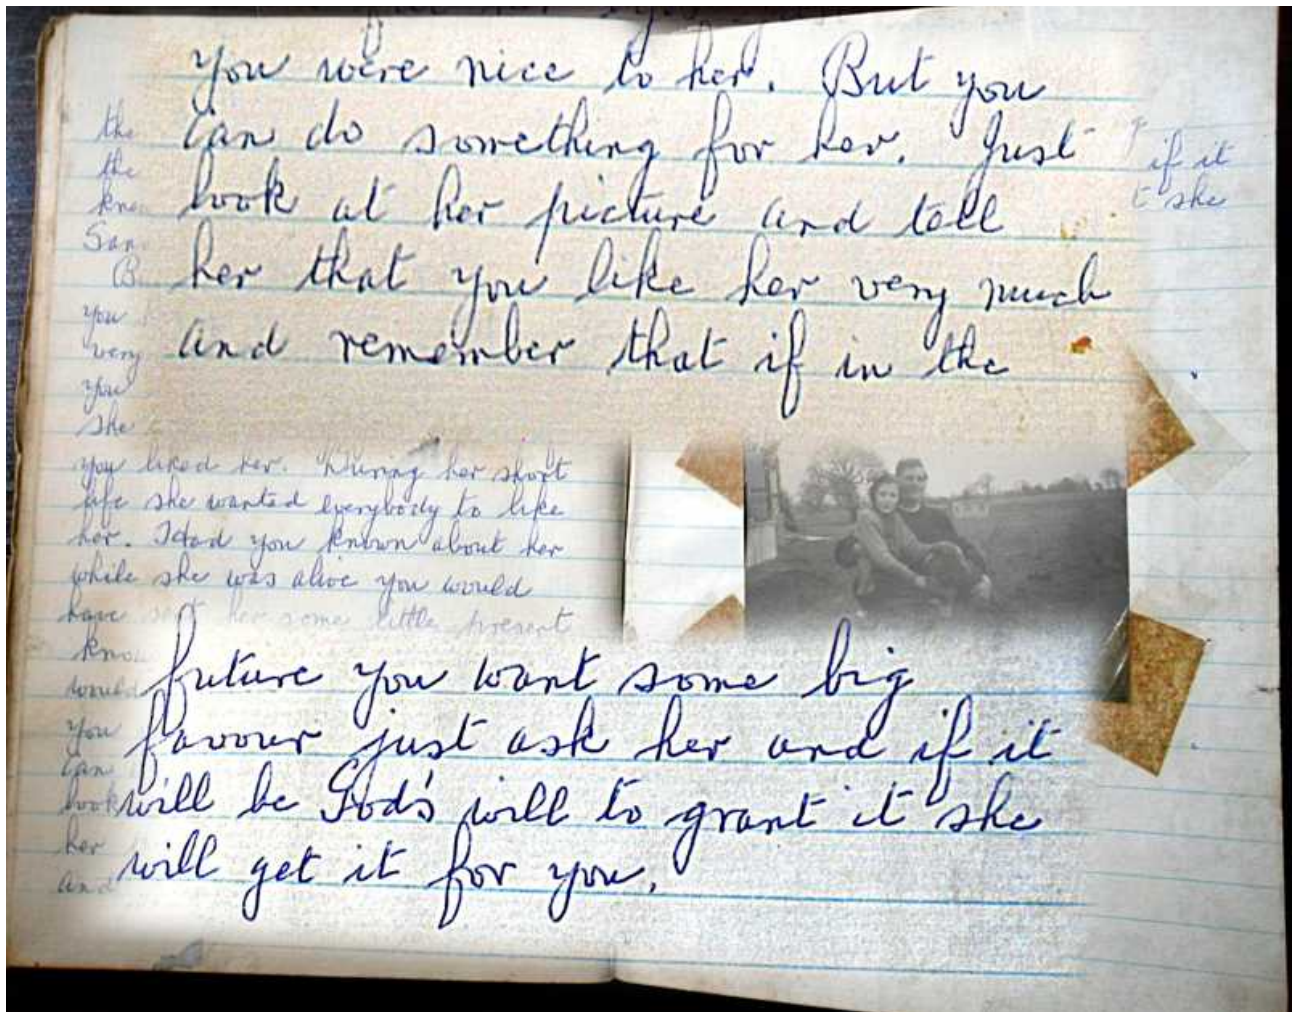 you were nice to her. But you
can do something for her. Just
look at her picture and tell
her that you like her very much
and remember that if in the
the
the
kne
San
B
you
very
you
she
if it
t she
you liked her. During her short
life she wanted everybody to like
her. Had you known about her
while she was alive you would
have sent her some little present
kno
would
you
can
look
her
and
future you want some big
favour just ask her and if it
will be God's will to grant it she
will get it for you.